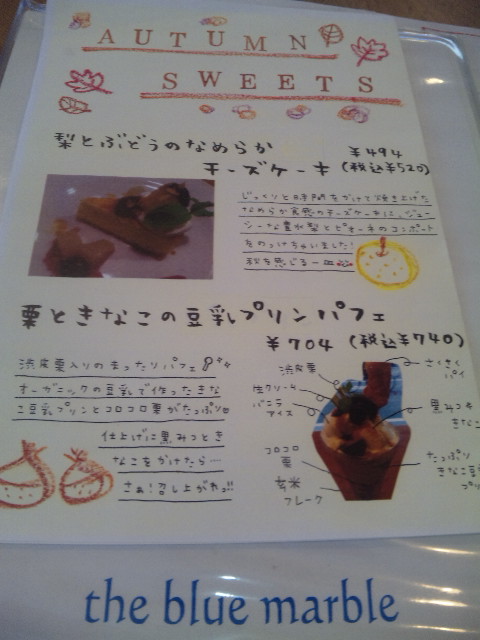 AUTUMN
SWEETS
梨とぶどうのなめらか
チーズケーキ
¥494
(税込¥520)
じっくりと時間をかけて焼き上げた
なめらか食感のチーズケーキに、ジュー
シーな豊水梨とピオーネのコンポート
をのっけちゃいました!
秋を感じる一皿
栗ときなこの豆乳プリンパフェ
¥704 (税込¥740)
渋皮栗入りのまったりパフェ
オーガニックの豆乳で作ったきな
こ豆乳プリンとコロコロ栗がたっぷり
仕上げに黒みつとき
なこをかけたら…
さぁ!召し上がれっ!!
渋皮栗
生クリーム
バニラ
アイス
コロコロ
栗
玄米
フレーク
さくさく
パイ
黒みつ
きなこ
たっぷり
きなこ豆
プリ
the blue marble